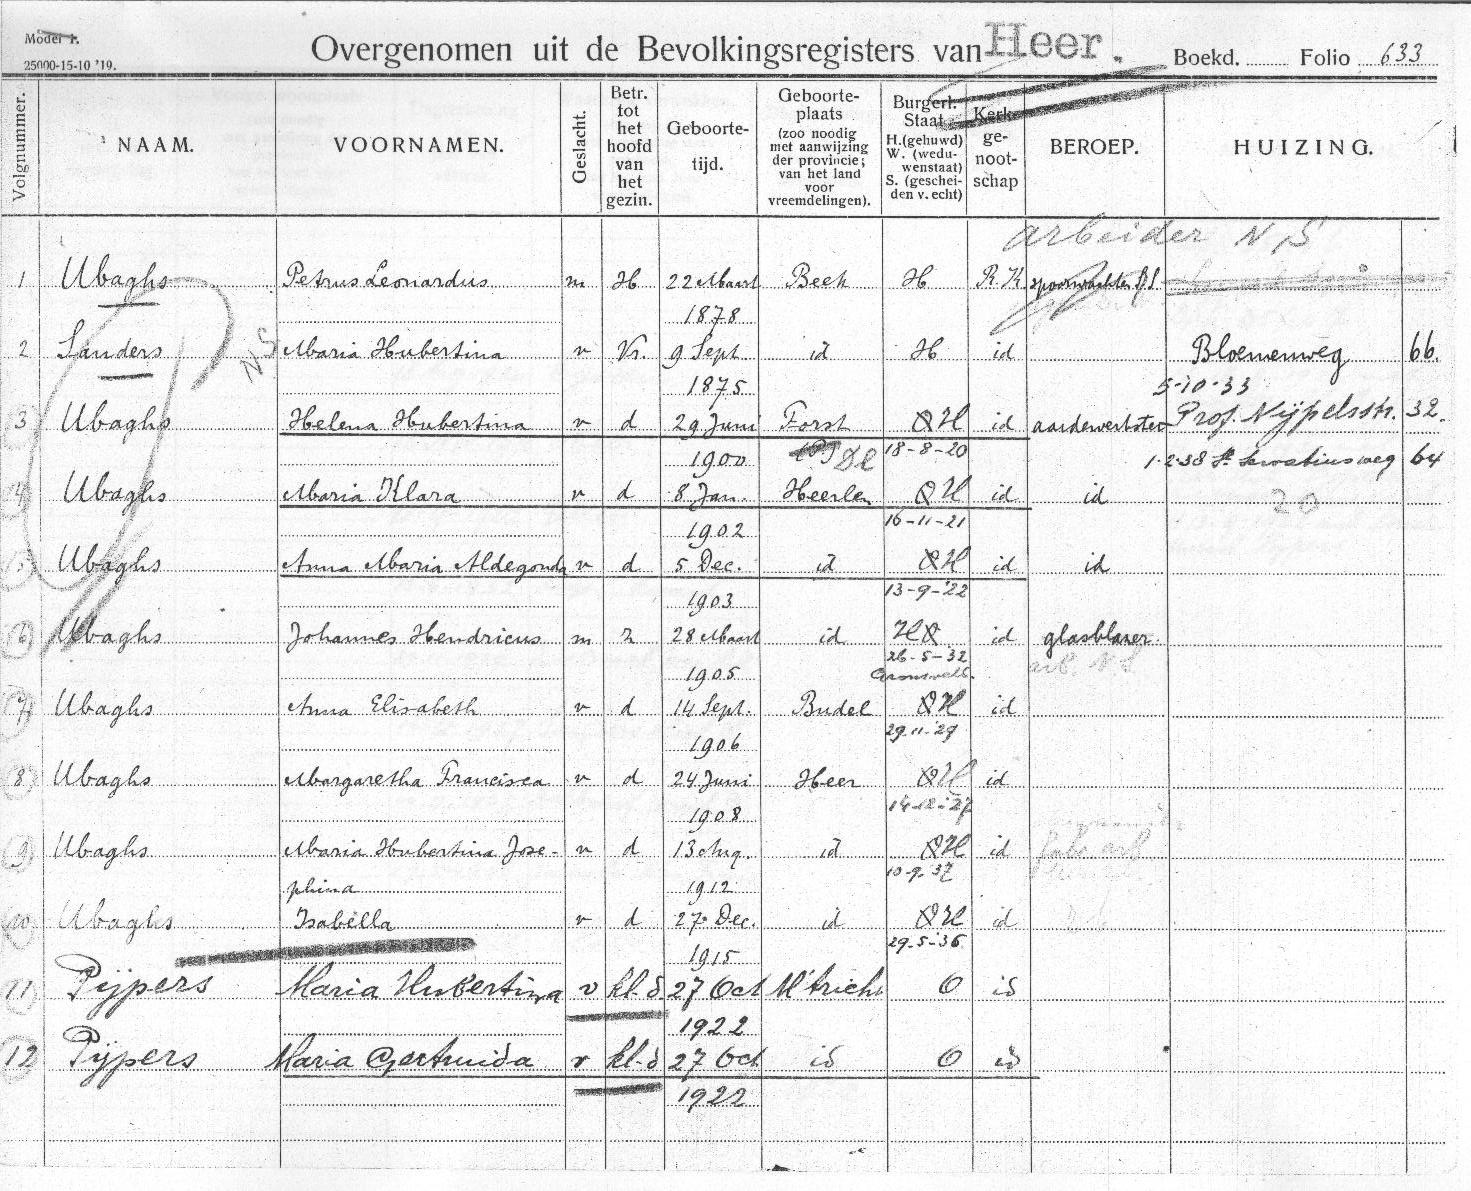 Model 1.
25000-15-10 '19.
Overgenomen uit de Bevolkingsregisters van Heer. Boekd. Folio 633
Volgnummer. NAAM. VOORNAMEN. Geslacht. Betr. tot het hoofd van het gezin. Geboorte-tijd. Geboorte-plaats (zoo noodig met aanwijzing der provincie; van het land voor vreemdelingen). Burgerl. Staat H. (gehuwd) W. (wedu-wenstaat) S. (geschei-den v. echt) Kerk-ge-noot-schap BEROEP. HUIZING.
arbeider N,S
1 Ubaghs Petrus Leonardus m H 22 Maart Beek H R.K spoorwachter S.S.
1878
2 Sanders NS Maria Hubertina v Vr. 9 Sept. id H id Bloemenweg 66
1875 5-10-33
3 Ubaghs Helena Hubertina v d 29 Juni Forst O H id aardewerkster Prof. Nijpelsstr. 32
1900 Dl 18-8-20 1-2-38 St. Servatiusweg 64
4 Ubaghs Maria Klara v d 8 Jan. Heerlen O H id id 20
1902 16-11-21
5 Ubaghs Anna Maria Aldegonda v d 5 Dec. id O H id id
1903 13-9-'22
6 Ubaghs Johannes Hendricus m z 28 Maart id H O id glasblazer
1905 26-5-32 Gronsveld. arb. N.S
7 Ubaghs Anna Elisabeth v d 14 Sept. Budel O H id
1906 29-11-'29
8 Ubaghs Margaretha Francisca v d 24 Juni Heer O H id
1908 14-12-'27
9 Ubaghs Maria Hubertina Jose- v d 13 Aug. id O H id fabr arb
phina 1912 10-9-'37
10 Ubaghs Isabella v d 27 Dec. id O H id
1915 29-5-'36
11 Pijpers Maria Hubertina v kl.d 27 Oct M'tricht O id
1922
12 Pijpers Maria Gertruida v kl-d 27 Oct id O id
1922